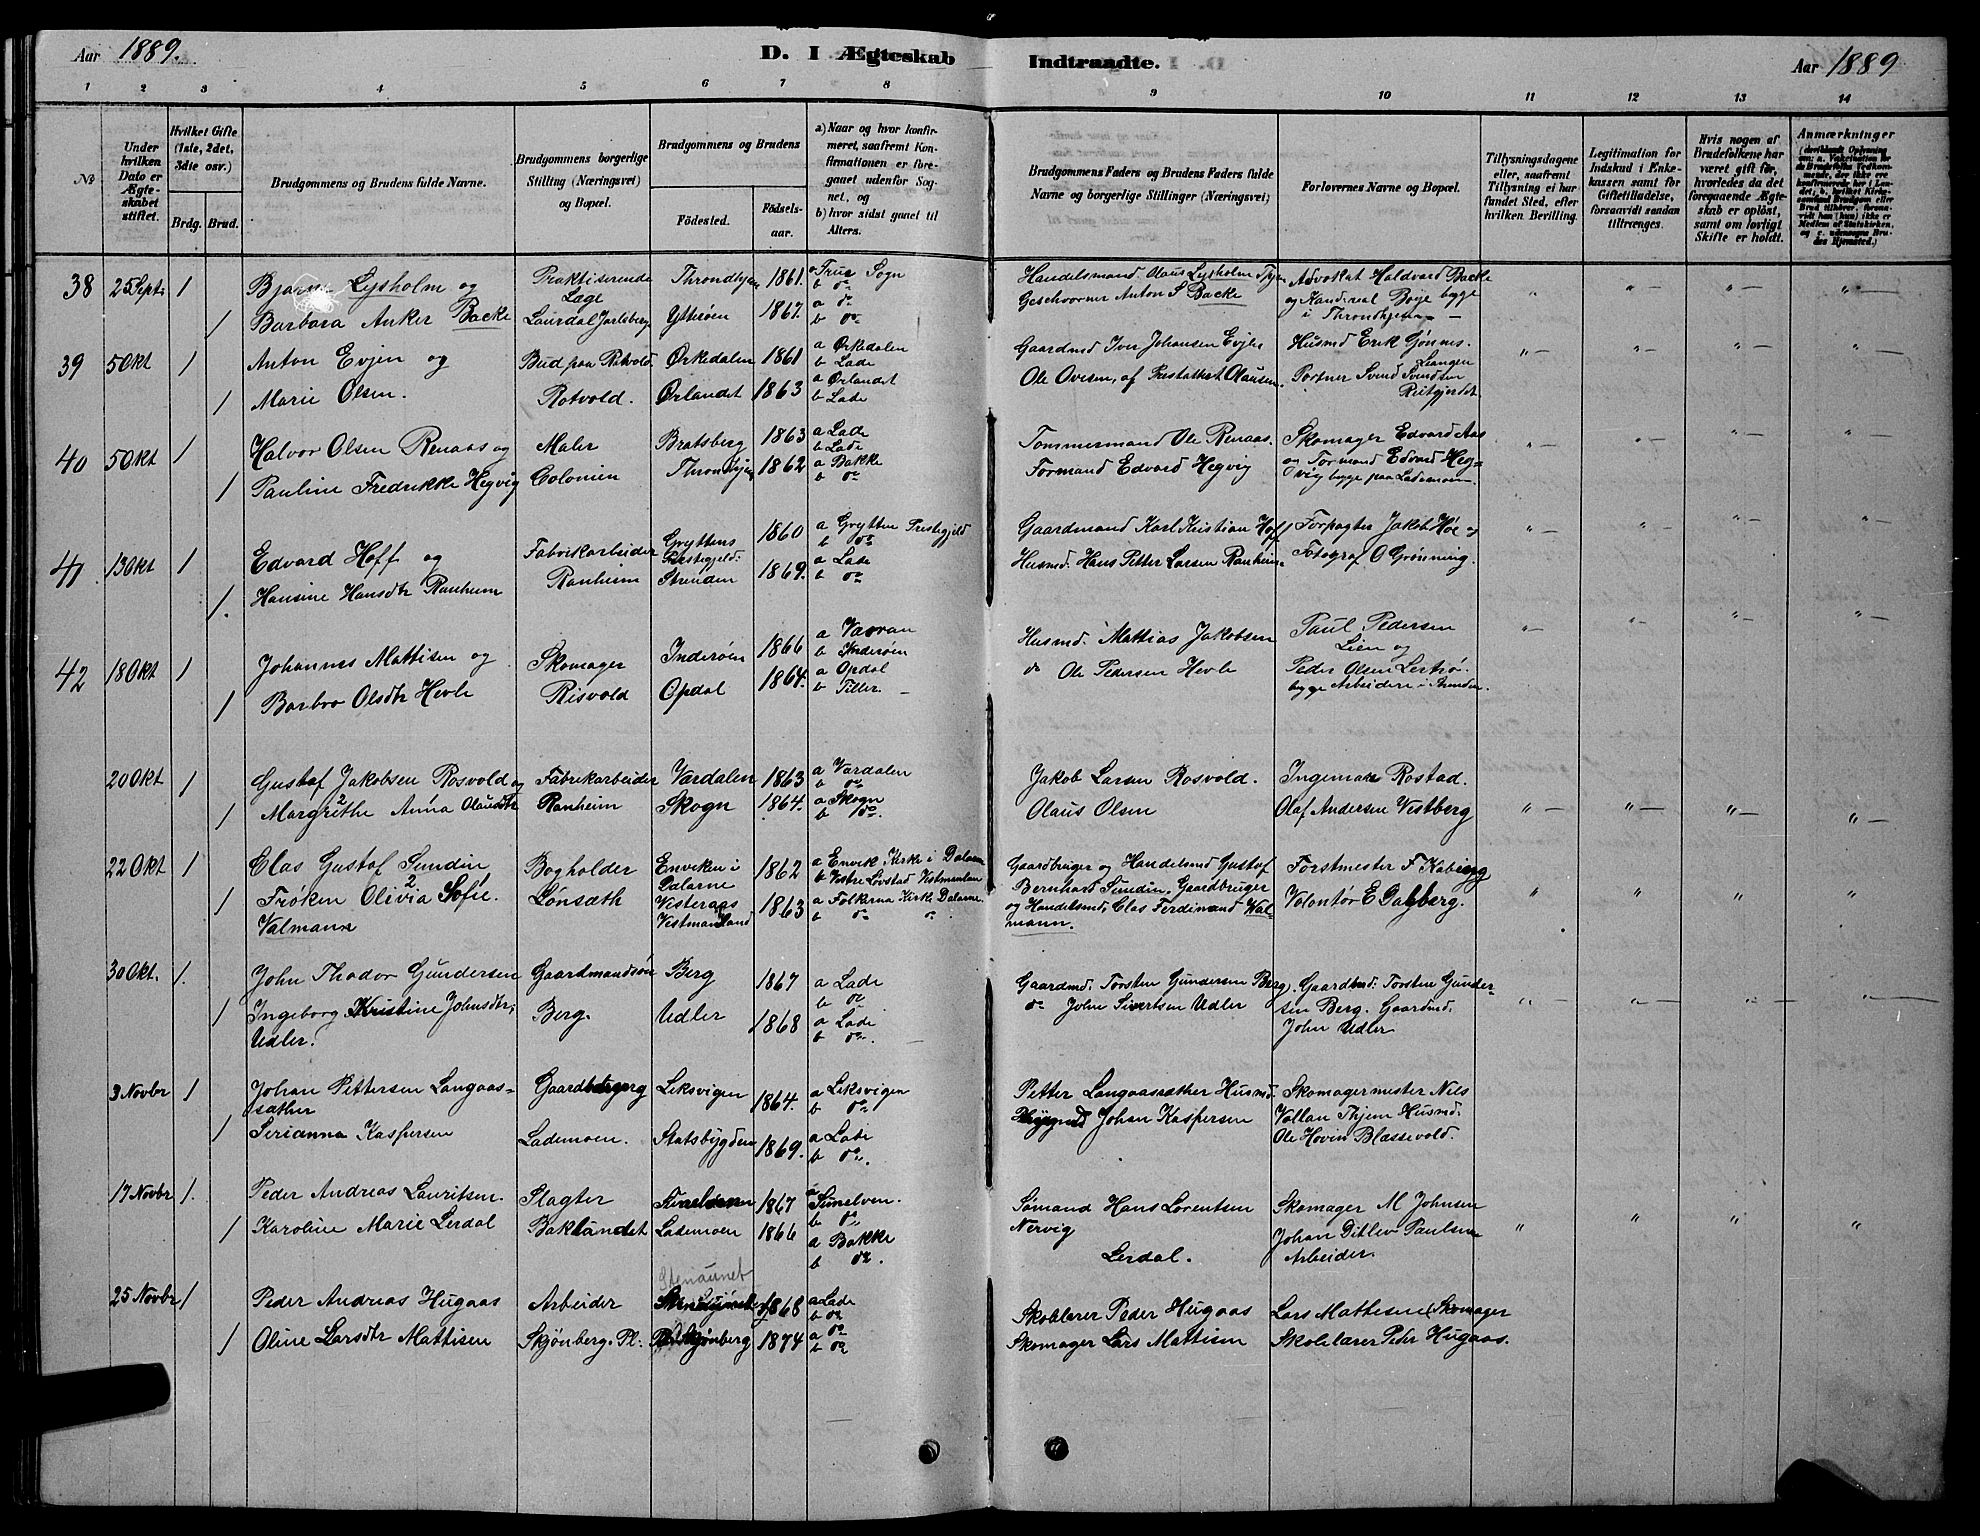 Aar 1889.
D. I Ægteskab Indtraadte.
Aar 1889
1 2 3 4 5 6 7 8 9 10 11 12 13 14
№
Under hvilken Dato er Ægteskabet stiftet.
Hvilket Gifte (1ste, 2det, 3die osv.)
Brdg. Brud.
Brudgommens og Brudens fulde Navne.
Brudgommens borgerlige Stilling (Næringsvei) og Bopæl.
Brudgommens og Brudens
Fødested. Fødsels-aar.
a) Naar og hvor konfirmeret, saafremt Konfirmationen er foregaaet udenfor Sognet, og
b) hvor sidst gaaet til Alters.
Brudgommens Faders og Brudens Faders fulde Navne og borgerlige Stillinger (Næringsvei)
Forlovernes Navne og Bopæl.
Tillysningsdagene eller, saafremt Tillysning ei har fundet Sted, efter hvilken Bevilling.
Legitimation for Indskud i Enkekassen samt for Giftetilladelse, forsaavidt saadan tiltrænges.
Hvis nogen af Brudefolkene har været gift før, hvorledes da det foregaaende Ægteskab er opløst, samt om lovligt Skifte er holdt.
Anmærkninger
38 25 Sept 1 Bjarne Lysholm og Praktiserende Læge Throndhjem 1861. a Frue Sogn b do Handelsmand Olaus Lysholm Thjem Advokat Haldvard Backe
1 Barbara Anker Backe Laurdal Jarlsberg Ytterøen 1867. a do b do Geschvorner Anton S Backe og Kandidat Boye begge i Throndhjem
39 5 Okt 1 Anton Evjen og Bud paa Rotvold Ørkedalen 1861 a Ørkedalen b Lade Gaardmd Iver Johansen Evjen Husmd Erik Gønnes. Leangen
1 Marie Olsen. Rotvold. Ørlandet 1863 a Ørlandet b Lade Ole Ovesen, af Portner Svend Svendsen
40 5 Okt 1 Halvor Olsen Renaas og Maler Bratsberg 1863 a Lade b Lade Tømmermand Ole Renaas. Skomager Edvard Aas
1 Pauline Fredrikke Hegvig Colonien Throndhjem 1862 a Bakke b do Formand Edvard Hegvig og Formand Edvard Hegvig begge paa Lademoen
41. 13 Okt 1 Edvard Hoff og Fabrikarbeider Gryttens Præstegjeld. 1860 a Grytten Prestegjeld b do Gaardmand Karl Kristian Hoff Forpagter Jakob Høe og
1. Hansine Hansdtr Ranheim Ranheim Strinden 1869. a Lade b do Husmd. Hans Petter Larsen Ranheim Fotograf O Grønning.
42 18 Okt 1 Johannes Mattisen og Skomager Inderøen 1866 a b Inderøen Husmd. Mattias Jakobsen Paul Pedersen Lien og
1 Barbro Olsdtr Hevle Risvold Opdal 1864. a Opdal b Tiller. do Ole Pedersen Hevle Peder Olsen begge Arbeidere i Strinden.
20 Okt 1 Gustaf Jakobsen Rosvold og Fabrikarbeider Værdalen 1863 a Værdalen b do Jakob Larsen Rosvold. Rostad.
1 Margrethe Anna Olausdtr Ranheim Skogn 1864. a Skogn b do. Olaus Olsen Olaf Andersen Vestberg
22 Okt 1 Clas Gustaf Sundin Bogholder Enviken i Dalarne 1862 a Envik Kirke i Dalarne b Vestre Løvstad Vestmanland Gaardbruger og Handelsmd Gustaf Bernhard Sundin. Forstmester F
1 Frøken Olivia Sofie. Valmann Lønsæth Vesteraas Vestmanland 1863 a Folkerna Kirke Dalarne. b do do Gaardbruger og Handelsmd, Clas Ferdinand Walmann. Volontør E Dahlberg.
30 Okt. 1. John Thodor Gundersen Gaardmandsøn Berg 1867 a Lade b do Gaardmd. Torsten Gundersen Berg. Gaardmd. Torsten Gundersen Berg.
1 Ingeborg Kristine Johnsdtr, Udler. Berg. Udler 1868 a Lade b do. do John Sivertsen Udler Gaardmd. John Udler
3 Novbr 1 Johan Pettersen Langaassæther Leksvigen 1864. a Leksvigen b do Petter Langaassæther Husmd. Skomagermester Nils Vollan Thjem
1 Serianna Kaspersen Lademoen. Statsbygden 1869. a Lade b do. Johan Kaspersen Husmd. Ole Hovin Blæssevold.
17 Novbr 1. Peder Andreas Lauritsen. Slagter 1867 a Sunelven. b do Sømand Hans Lorentsen Nervig Skomager M Johnsen
1 Karoline Marie Lerdal Baklandet Lademoen 1866 a Bakke b do. Lerdal. Johan Ditlev Paulsen Arbeider.
Stenaunet
25 Novbr 1 Peder Andreas Hugaas Arbeider 1868 a Lade b do Skolelærer Peder Hugaas Lars Mattisen Skomager
1 Oline Larsdtr Mattisen Skjønberg. Pl. Skjønberg 1874 a do b do Skomager Lars Mattisen Skolelærer Peder Hugaas.